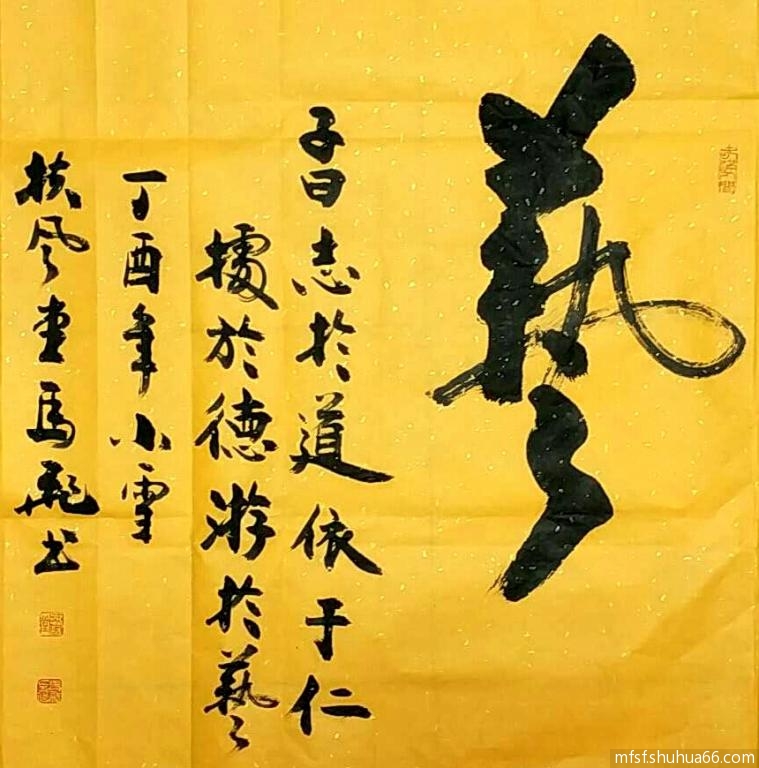 藝
子曰志於道依于仁
據於德游於藝
丁酉年小雪
扶风堂馬彪书
mfsf.shuhua66.com